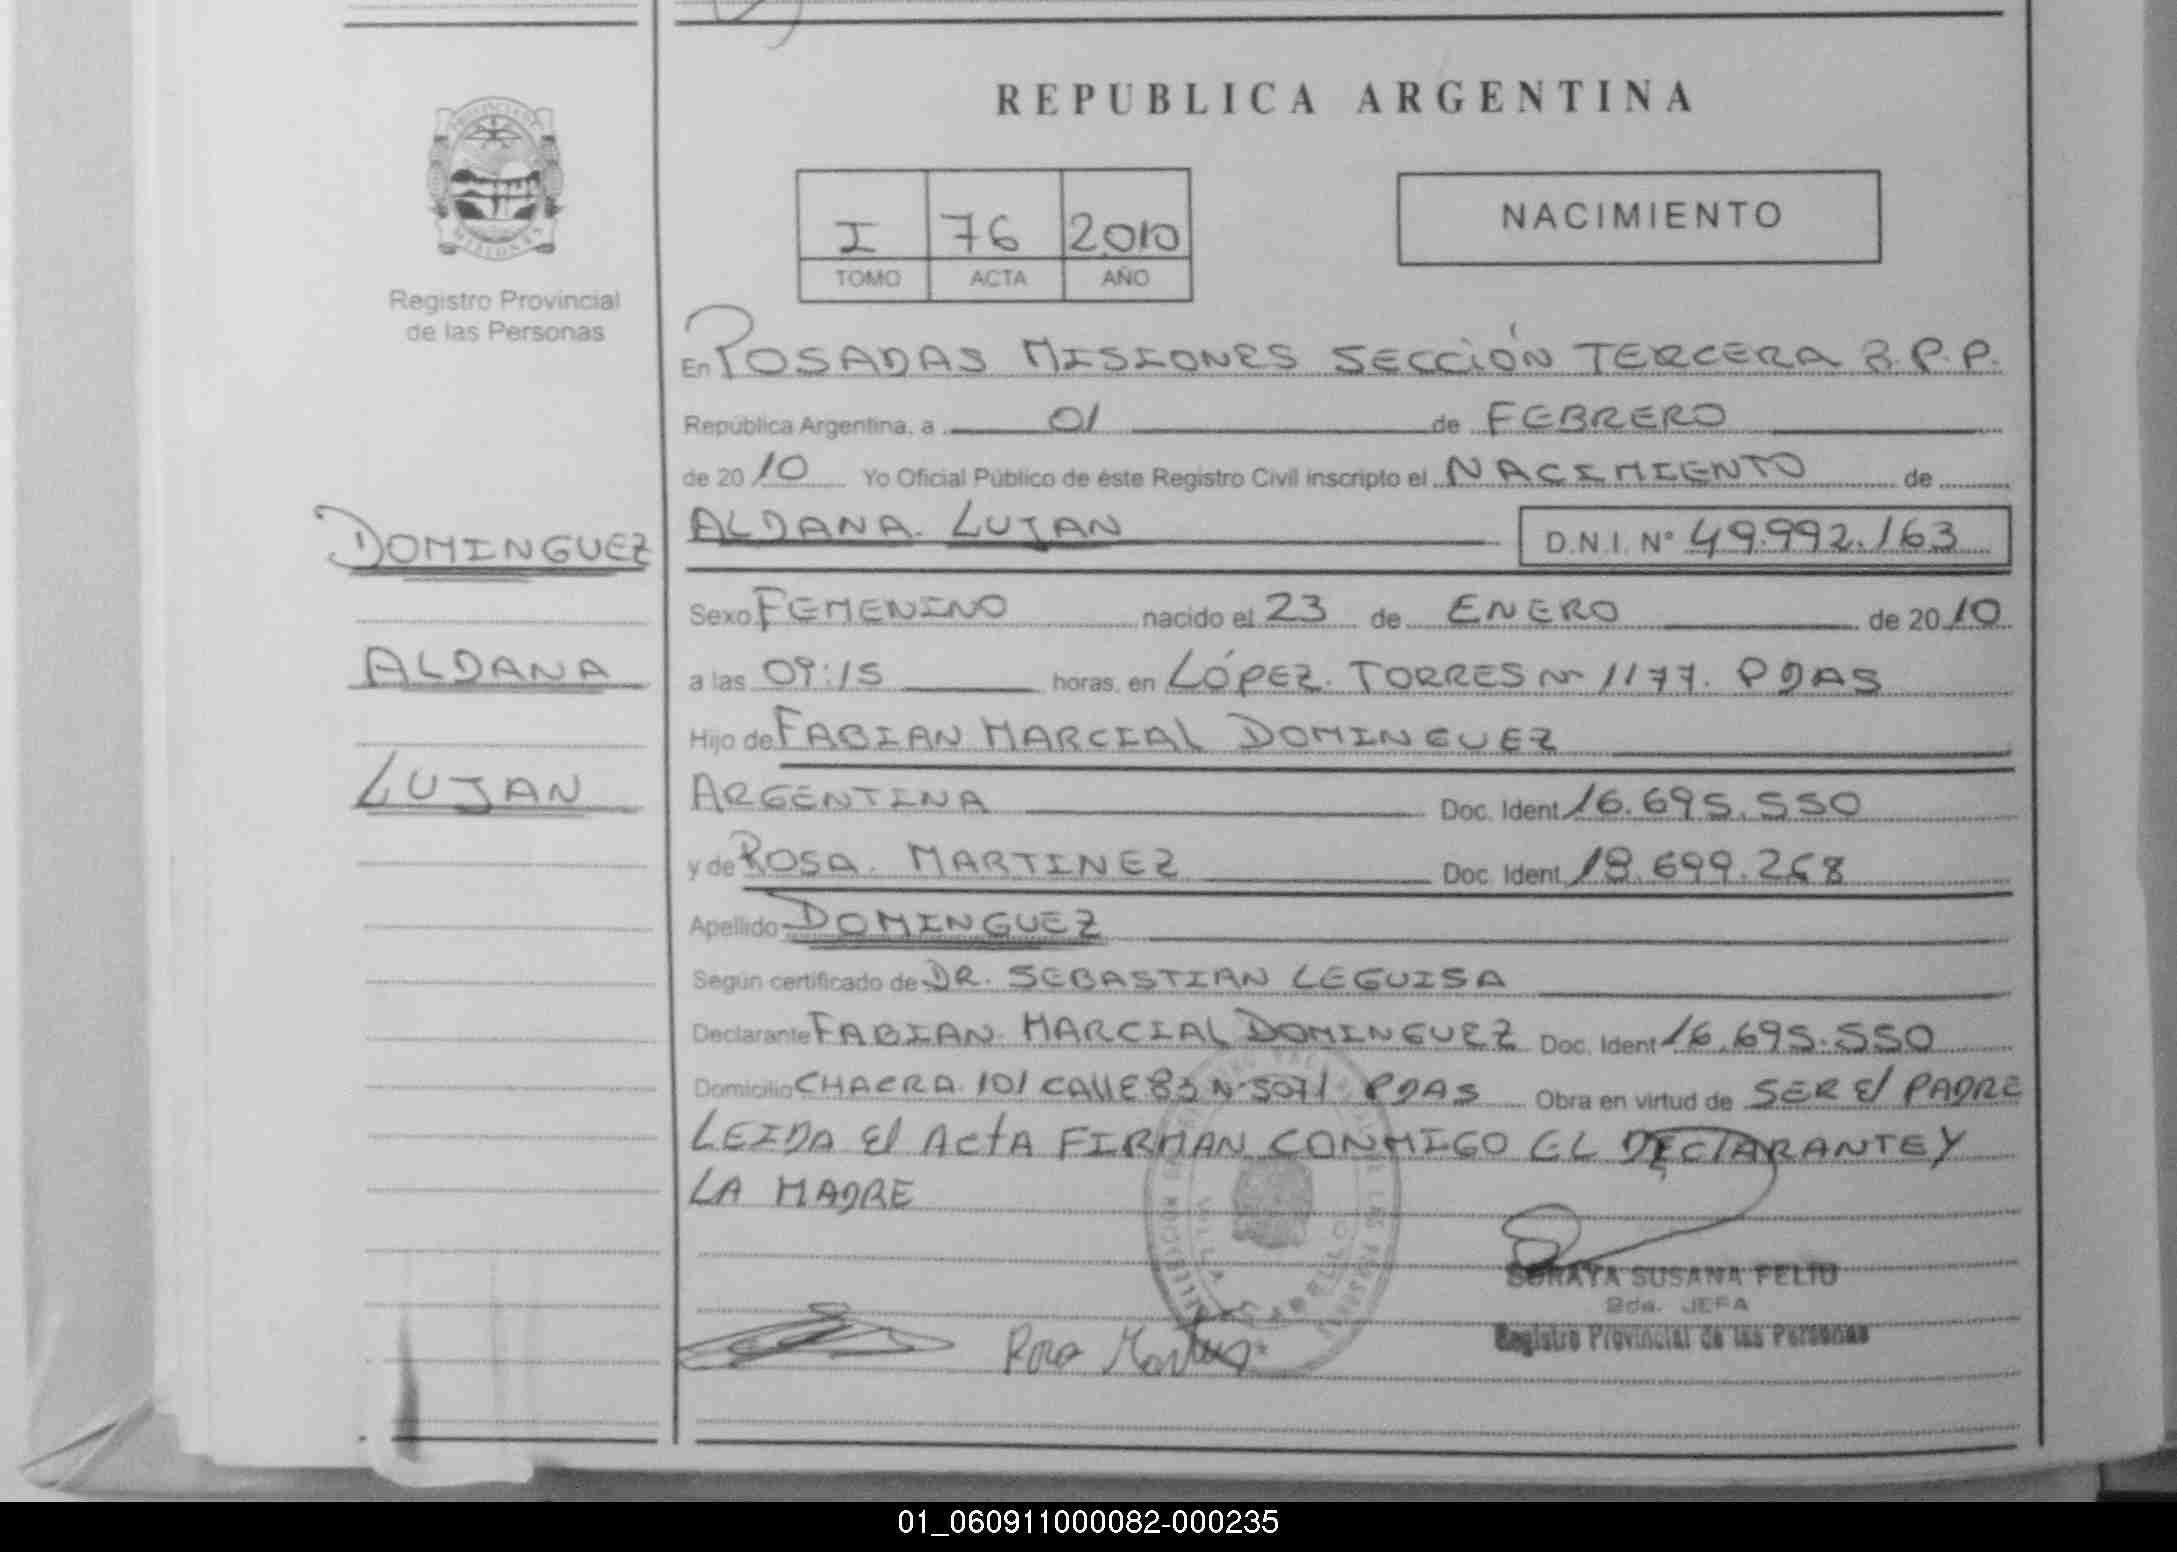 REPUBLICA ARGENTINA
PROVINCIA DE MISIONES
Registro Provincial
de las Personas
I 76 2010
TOMO ACTA AÑO
NACIMIENTO
En POSADAS MISIONES SECCIÓN TERCERA R.P.P.
República Argentina, a 01 de FEBRERO
de 2010 Yo Oficial Público de éste Registro Civil inscripto el NACIMIENTO de
DOMINGUEZ
ALDANA
LUJAN
ALDANA. LUJAN D.N.I. N° 49.992.163
Sexo FEMENINO nacido el 23 de ENERO de 2010
a las 09:15 horas, en LÓPEZ. TORRES Nº 1177. PDAS
Hijo de FABIAN MARCIAL DOMINGUEZ
ARGENTINA Doc. Ident 16.695.550
y de ROSA. MARTINEZ Doc. Ident 18.699.268
Apellido DOMINGUEZ
Según certificado de DR. SEBASTIAN LEGUISA
Declarante FABIAN. MARCIAL DOMINGUEZ Doc. Ident 16.695.550
Domicilio CHACRA 101 CALLE 83 Nº 5071 PDAS Obra en virtud de SER El PADRE
LEIDA El ACtA FIRMAN CONMIGO EL DECLARANTE Y
LA MADRE
VILLA CABELLO
SORAYA SUSANA FELIU
2da. JEFA
Registro Provincial de las Personas
Rosa Martinez
01_060911000082-000235